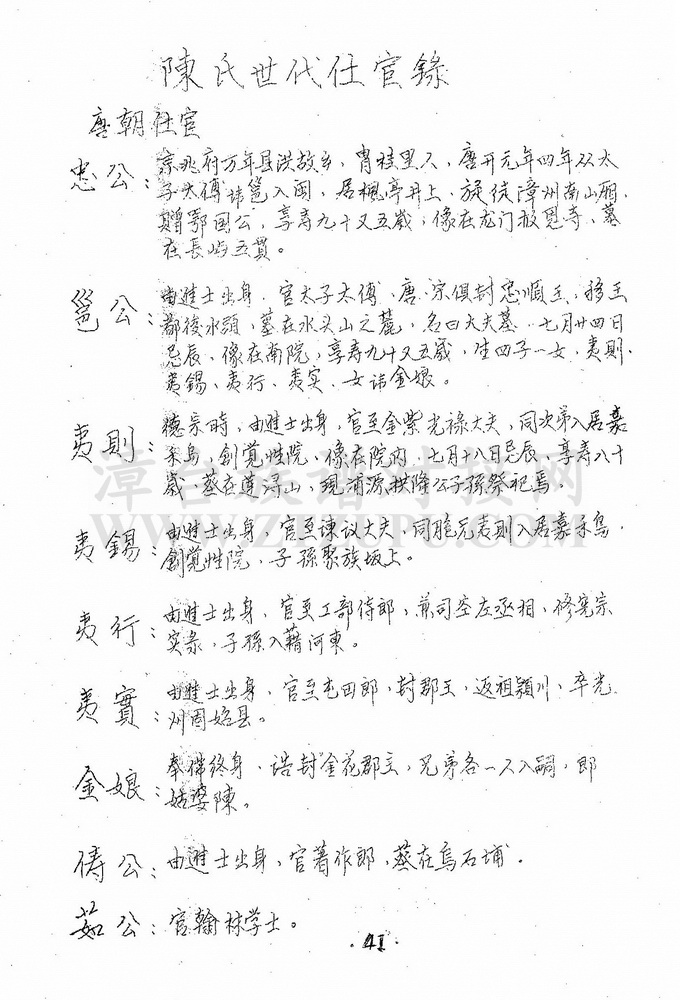 陳氏世代仕官錄
唐朝仕官
忠公：京兆府万年县洪故乡，胄桂里人，唐开元年四年双太
子太傅讳邕入闽，居楓亭井上，旋徒漳州南山厢，
贈鄂国公，享寿九十又五歲，像在龙门报恩寺，墓
在長屿五貫。
邕公：由進士出身，官太子太傅，唐宗俱封忠順王，移王
都後水頭，墓在水头山之麓，名曰大夫墓，七月廿四日
忌辰，像在南院，享寿九十又五歲，生四子一女，夷則、
夷錫、夷行、夷实，女讳金娘。
夷則：德宗時，由進士出身，官至金紫光祿大夫，同次弟入居嘉
禾島，創覚性院，像在院内，七月十八日忌辰，享寿八十
歲，墓在蓮浔山，現浦源拱降公子孫祭祀焉。
夷錫：由進士出身，官至諫议大夫，同胞兄夷則入居嘉禾島，
創覚性院，子孫聚族坂上。
夷行：由進士出身，官至工部侍郎，兼司空左丞相，修宪宗
实录，子孫入藉河東。
夷實：由進士出身，官至屯田郎，封郡王，返祖潁川，卒光
州固始县。
金娘：奉佛终身，诰封金花郡主，兄弟各一人入嗣，即
姑婆陳。
俦公：由進士出身，官著作郎，墓在烏石埔。
茹公：官翰林学士。
·41·
漳台族谱对接网